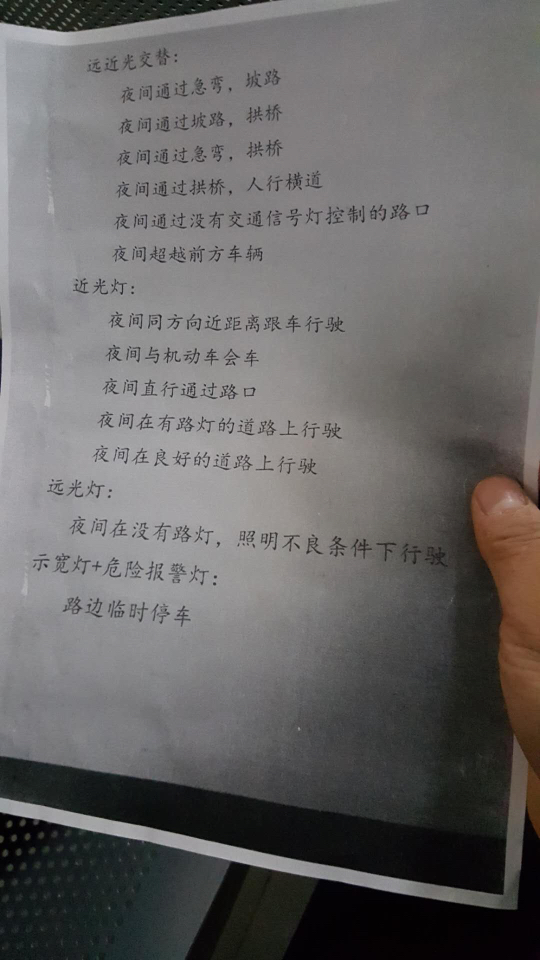 远近光交替:
夜间通过急弯，坡路
夜间通过坡路，拱桥
夜间通过急弯，拱桥
夜间通过拱桥，人行横道
夜间通过没有交通信号灯控制的路口
夜间超越前方车辆
近光灯:
夜间同方向近距离跟车行驶
夜间与机动车会车
夜间直行通过路口
夜间在有路灯的道路上行驶
夜间在良好的道路上行驶
远光灯:
夜间在没有路灯，照明不良条件下行驶
示宽灯+危险报警灯:
路边临时停车